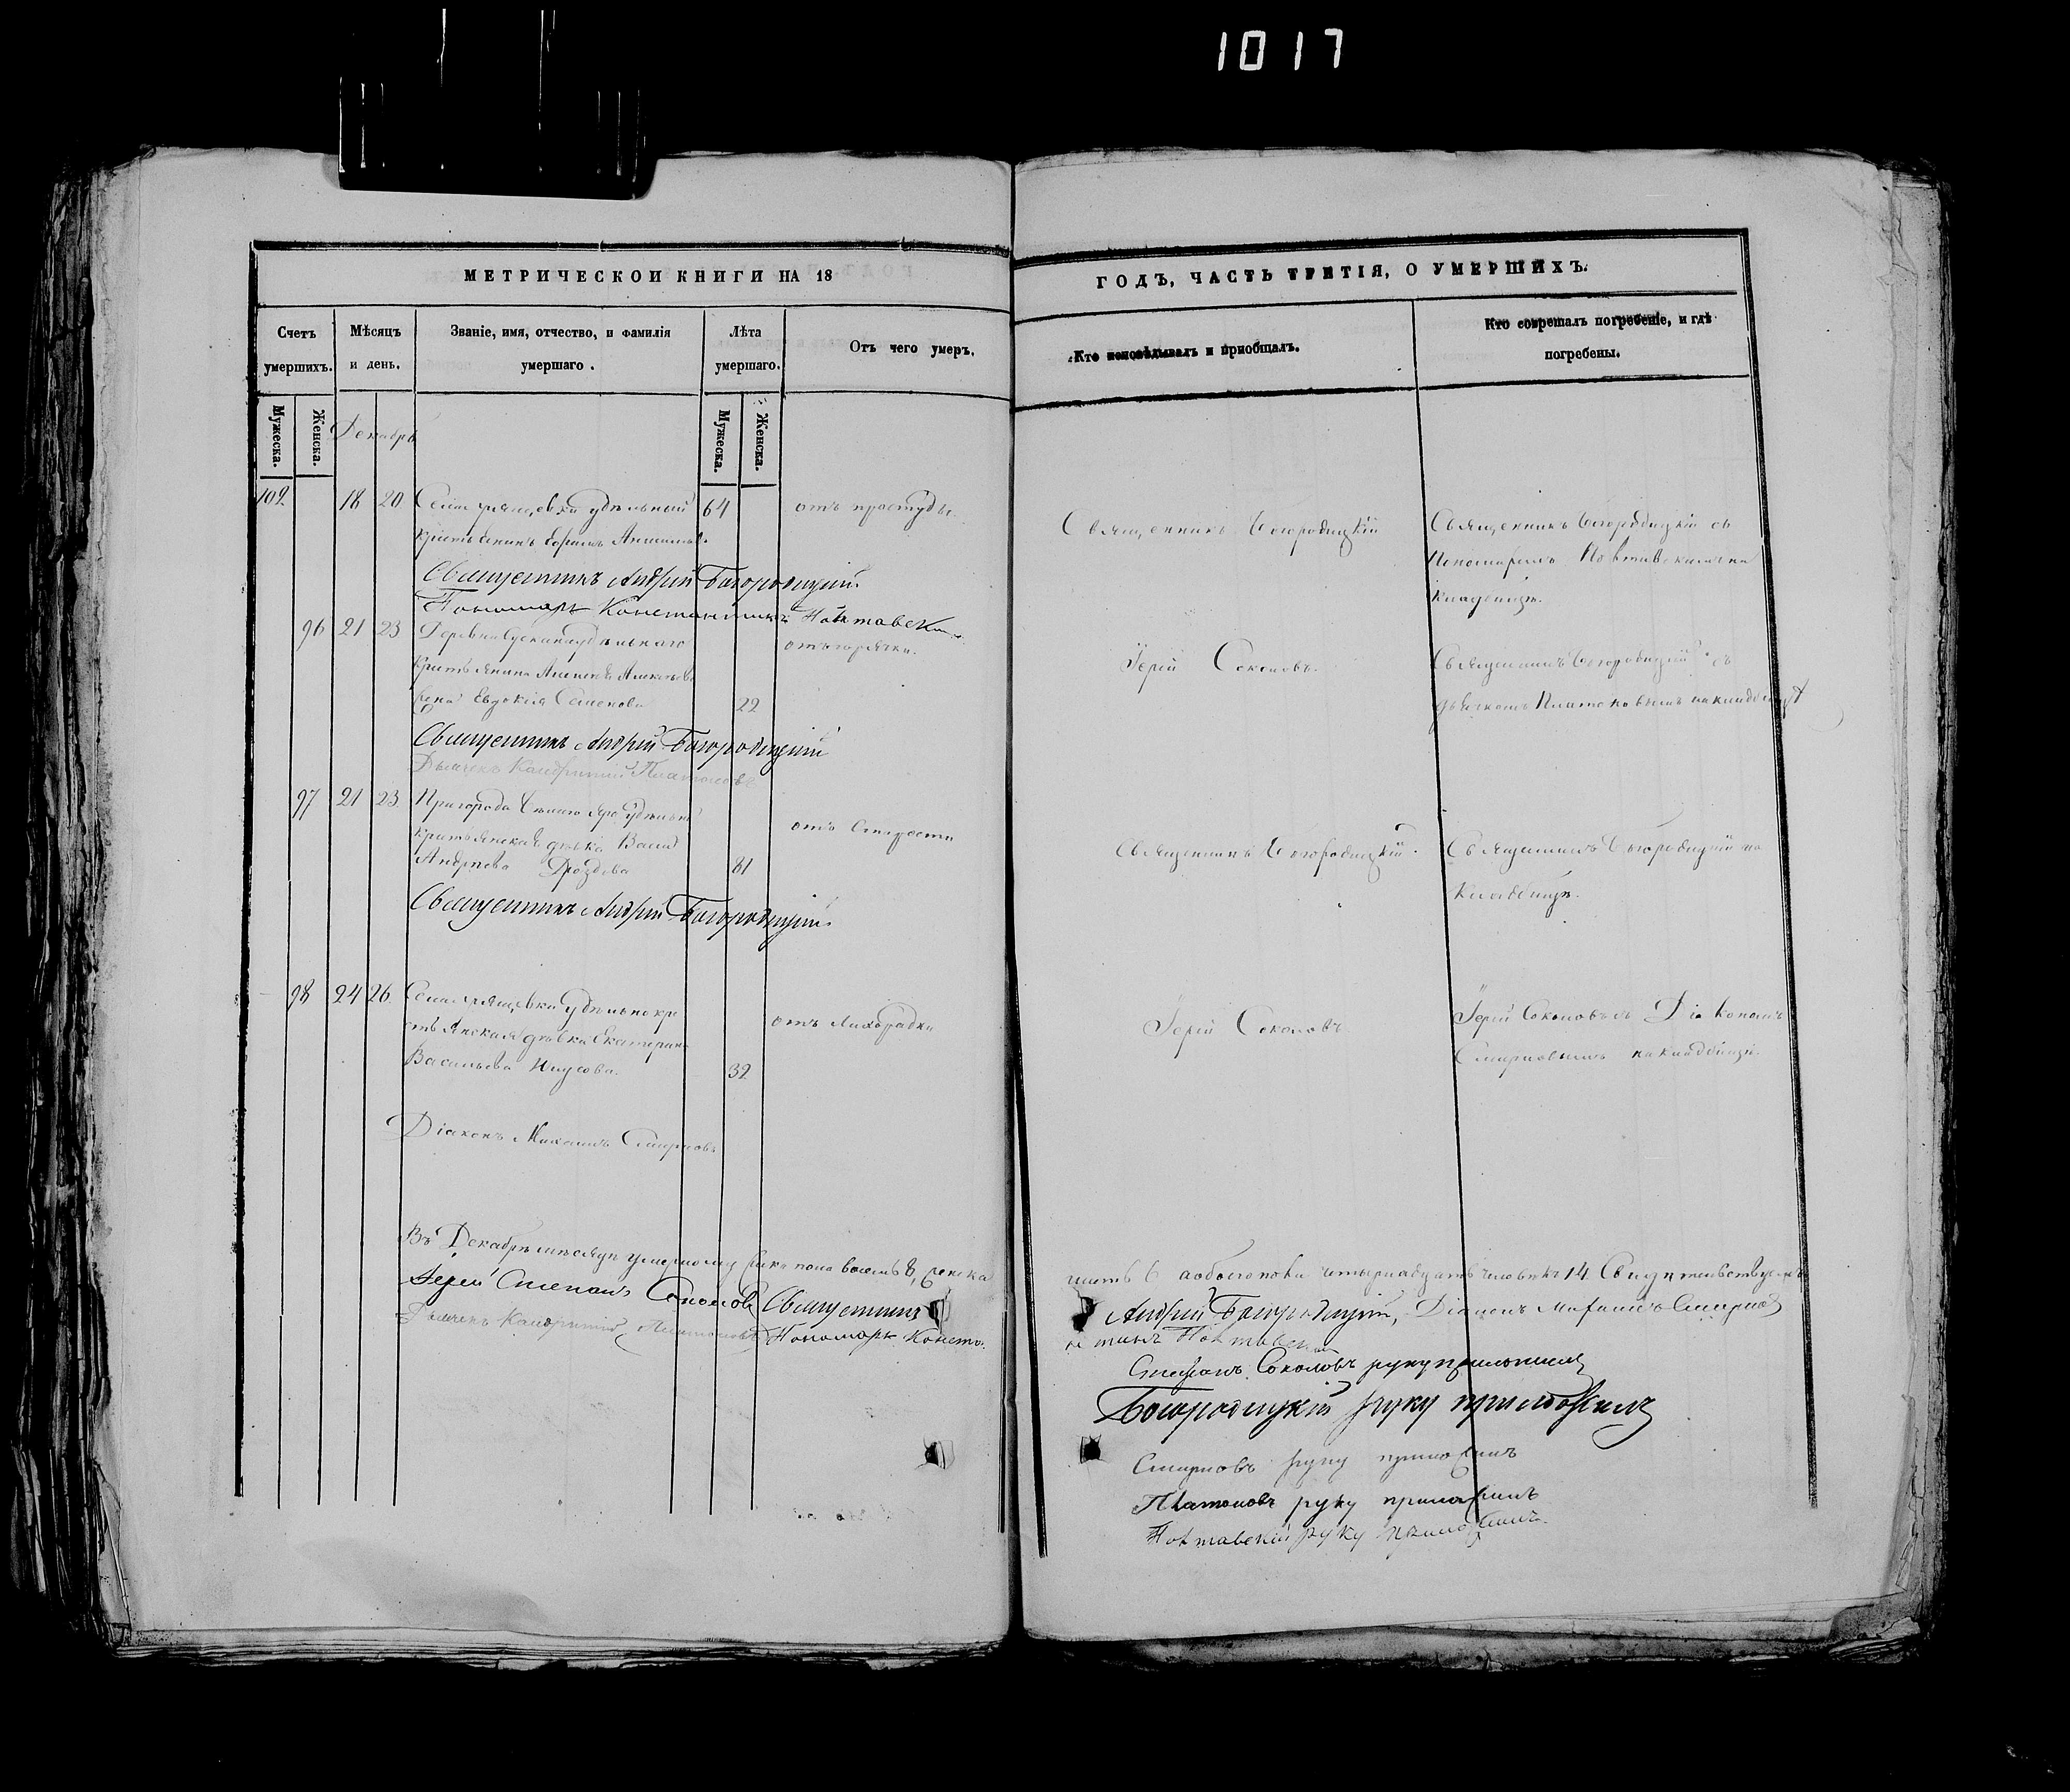 1017
МЕТРИЧЕСКОЙ КНИГИ НА 18
ГОДЪ, ЧАСТЬ ТРЕТІЯ, О УМЕРШИХЪ.
Счетъ умершихъ.
Мѣсяцъ и день.
Званіе, имя, отчество, и фамилія умершаго.
Лѣта умершаго.
Отъ чего умеръ.
Кто исповѣдывалъ и пріобщалъ.
Кто совершалъ погребеніе, и гдѣ погребены.
Мужеска.
Женска.
Декабрь
Мужеска.
Женска.
102 18 20 удѣльный 64 отъ простуды
крестьянинъ
Священникъ Богородицкій
Священникъ Богородицкій съ
Пономаремъ на
кладбищѣ.
Священникъ Андрей Богородицкій
Пономарь Константинъ
96 21 23 Деревни удѣльнаго отъ горячки.
крестьянина
жена Евдокія Семенова 22
Іерей Соколовъ.
Священникъ Богородицкій съ
дьячкомъ Платоновымъ на кладбищѣ
Священникъ Андрей Богородицкій
Дьячекъ Платоновъ
97 21 23 Пригорода удѣльная отъ старости
крестьянская дѣвка
Андреева Дроздова 81
Священникъ Богородицкій.
Священникъ Богородицкій на
кладбищѣ.
Священникъ Андрей Богородицкій
98 24 26 Села удѣльно кре отъ лихорадки
стьянская дѣвка Екатерина
Васильева 32
Іерей Соколовъ
Іерей Соколовъ съ Діакономъ
Смирновымъ на кладбищѣ.
Діаконъ Михаилъ Смирновъ
Въ Декабрѣ мѣсяцѣ умерло мужска пола восемь 8, женска
шесть 6 а обоего пола четырнадцать человѣкъ 14. Свидѣтельствуемъ
Іерей Степанъ Соколовъ Священникъ
Андрей Богородицкій, Діаконъ Михаилъ Смирновъ
Дьячекъ Платоновъ Пономарь Конста
нтинъ
Степанъ Соколовъ руку приложилъ
Богородицкій руку приложилъ
Смирновъ руку приложилъ
Платоновъ руку приложилъ
руку приложилъ.